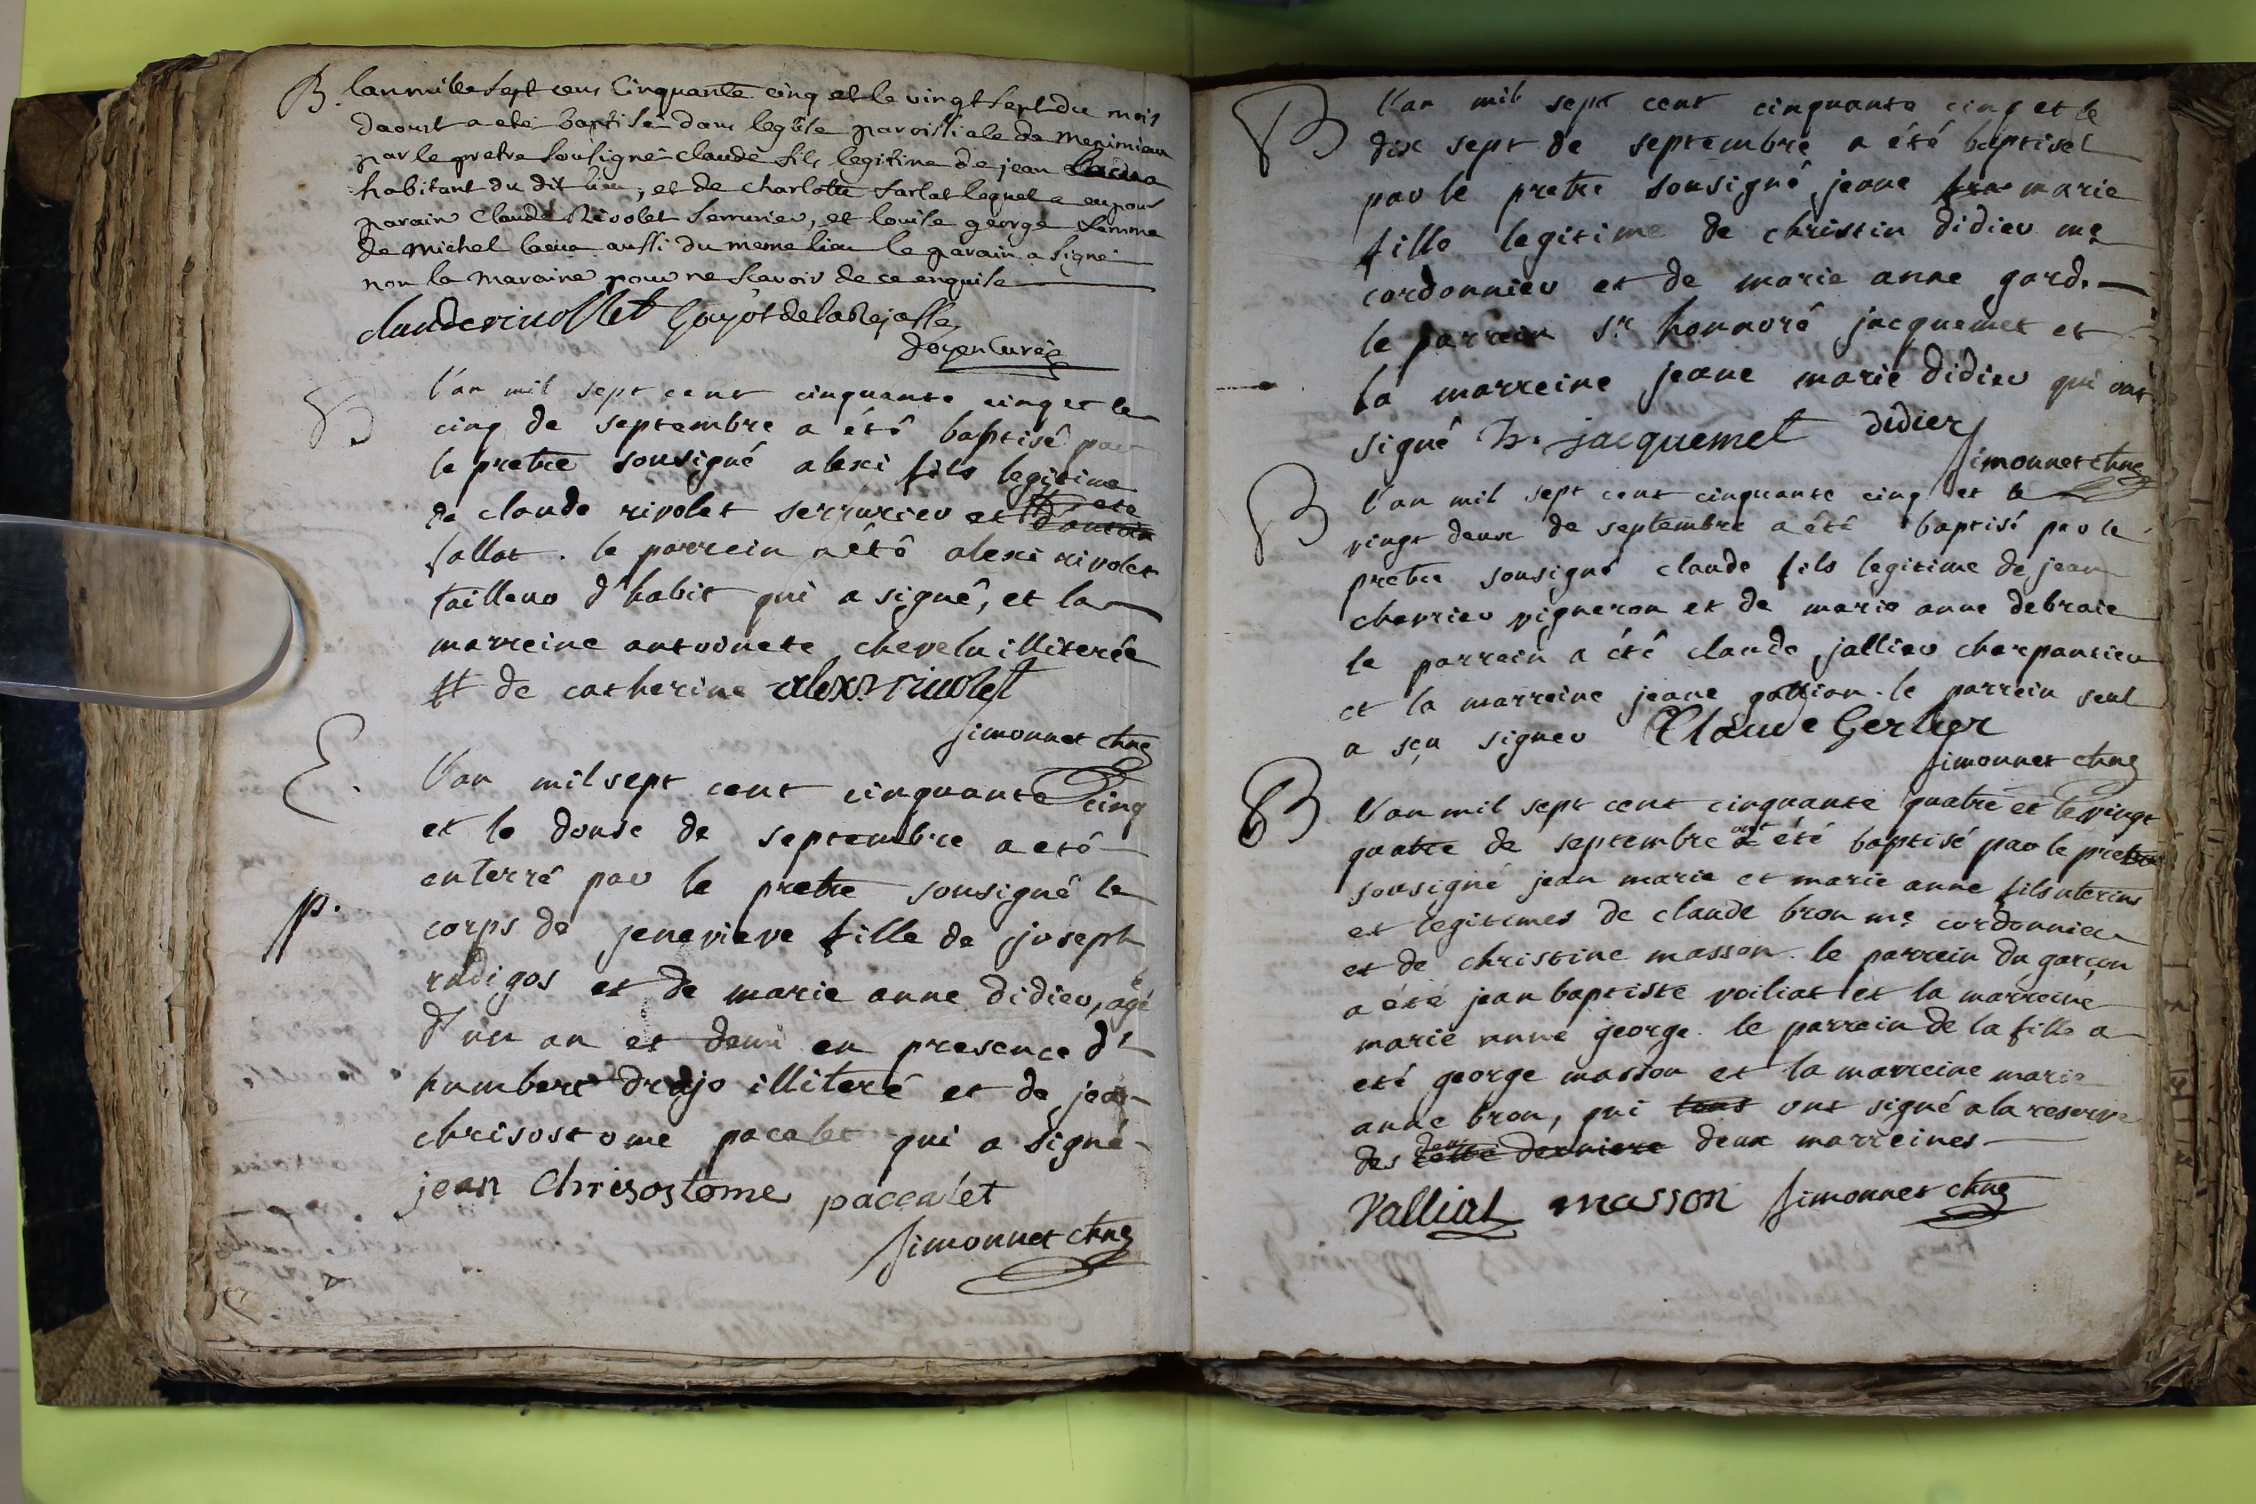 B. lan mille sept cens Cinquante cinq et le vingt sept du mois
daoust a eté baptisé dans leglise paroissiale de meximieux
par le pretre sousigné claude fils legitime de jean
habitant du dit lieu, et de charlotte sarlat lequel a eu pour
parain Claude Rivolet serrurier, et louise george femme
de michel aussi du meme lieu le parain a signé
non la maraine pour ne scavoir de ce enquise
claude rivollet Guyot de la
doyen Curé
B l'an mil sept cent cinquante cinq et le
cinq de septembre a été baptisé par
le pretre sousigné alexi fils legitime
de claude rivolet serrurier et #
sallat. le parrein a été alexi rivolet
tailleur d'habit qui a signé, et la
marreine antoinete chevelu illiterée
# de catherine alexi rivolet
simonnet chne
E. l'an mil sept cent cinquante cinq
et le douse de septembre a eté
enterré par le pretre sousigné le
p. corps de jenevieve fille de joseph
rudigos et de marie anne didier, agé
d'un an et demi en presence d'
humbert drojo illiteré et de jean
chrisostome pacalet qui a signé
jean Chrisostome paccalet
simonnet chne
B l'an mil sept cent cinquante cinq et le
dix sept de septembre a été baptisét
par le pretre sousigné jeane marie
fille legitime de christin didier me
cordonnier et de marie anne gard.
le parrein sr honnoré jacquemet et
la marreine jeane marie didier qui ont
signé h. jacquemet didier
simonnet chne
B l'an mil sept cent cinquante cinq et le
vingt deux de septembre a été baptisé par le
pretre sousigné claude fils legitime de jean
charrier vigneron et de marie anne debraie
le parrein a été claude jallier charpantier
et la marreine jeane gallian. le parrein seul
a sçu signer Claude Gerlier
simonnet chne
B l'an mil sept cent cinquante quatre et le vingt
quatre de septembre ont été baptisé par le pretre
sousigné jean marie et marie anne fils uterins
et legitimes de claude bron me cordonnier
et de christine masson. le parrein du garçon
a été jean baptiste voiliat et la marreine
marie anne george. le parrein de la fille a
eté george masson et la marreine marie
anne bron, qui tous ont signé a la reserve
des deux cette derniere deux marreines.
Valliat masson simonnet chne